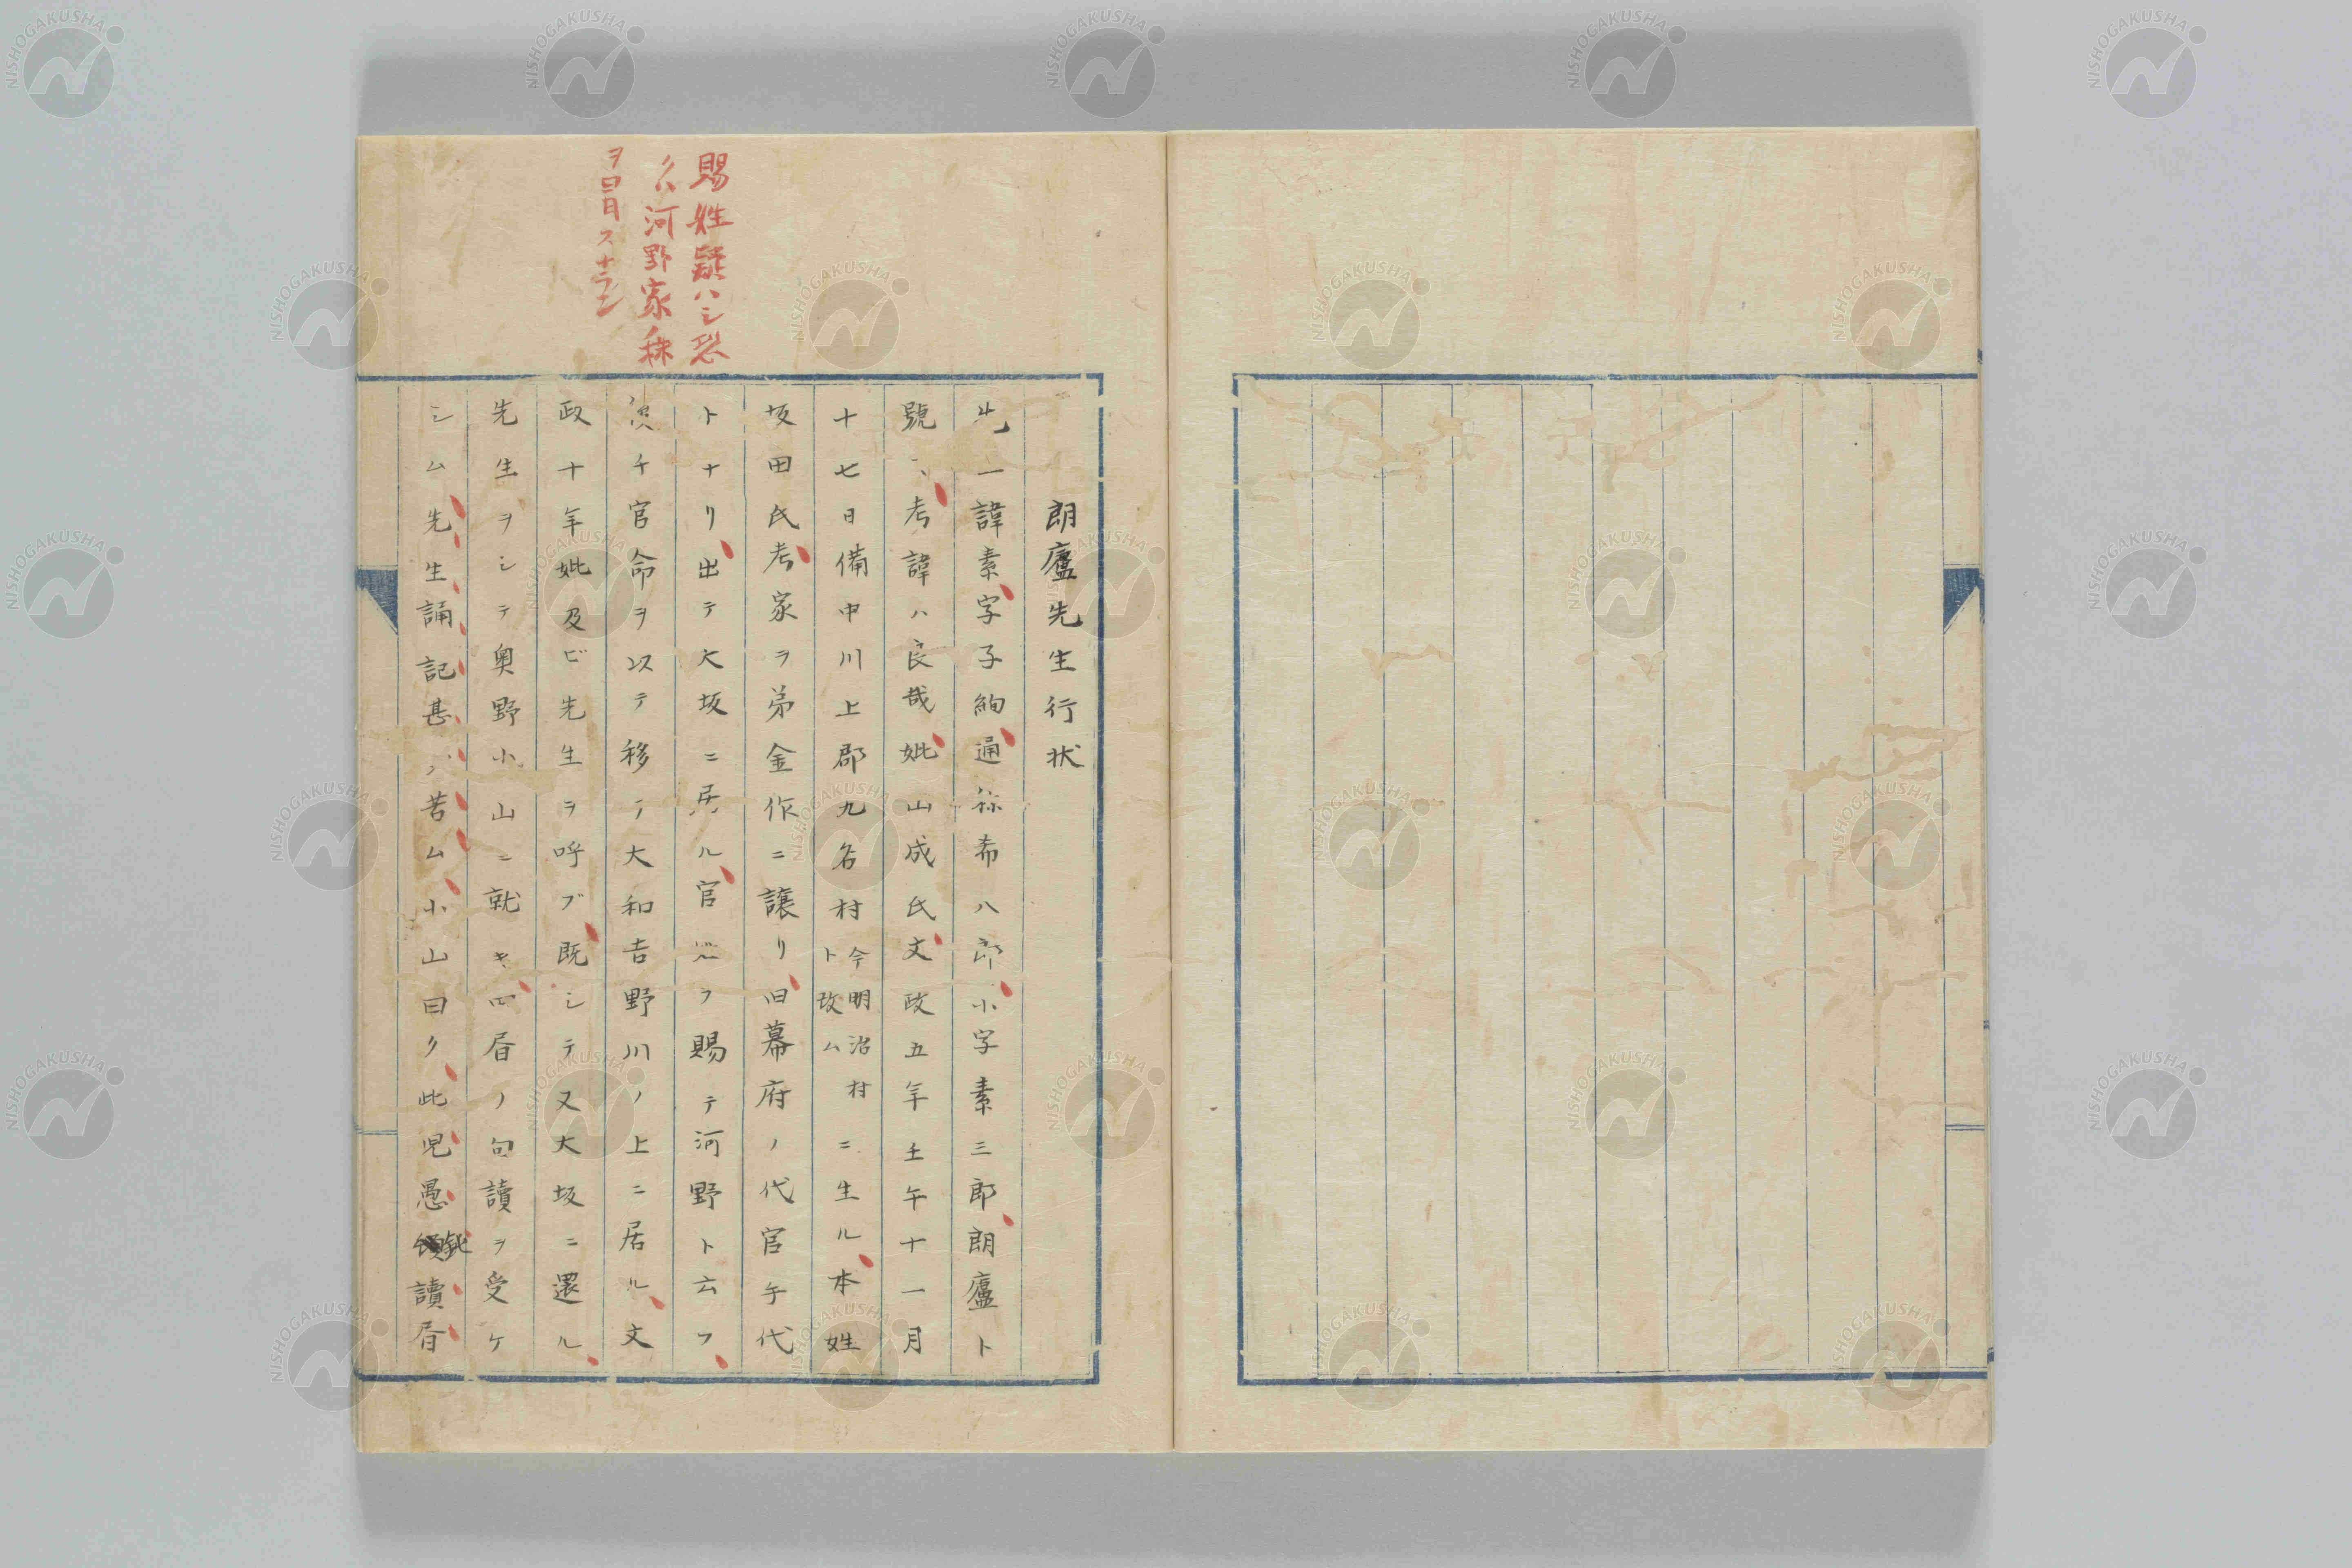 賜姓疑ハシ恐
クハ河野家株
ヲ冒スナラン
朗廬先生行状
先 諱素字子絢通称希八郎小字素三郎朗廬ト
號 考諱ハ良哉妣山成氏文政五年壬午十一月
十七日備中川上郡九名村今明治村ト改ムニ生ル本姓
坂田氏考家ヲ弟金作ニ譲リ旧幕府ノ代官手代
トナリ出テ大坂ニ居ル官 ヲ賜テ河野ト云フ
チ官命ヲ以テ移テ大和吉野川ノ上ニ居ル文
政十年妣及ビ先生ヲ呼ブ既シテ又大坂ニ還ル
先生ヲシテ奥野小山ニ就キ四書ノ句讀ヲ受ケ
シム先生誦記甚ダ苦ム小山曰ク此児愚鈍讀書
NISHOGAKUSHA